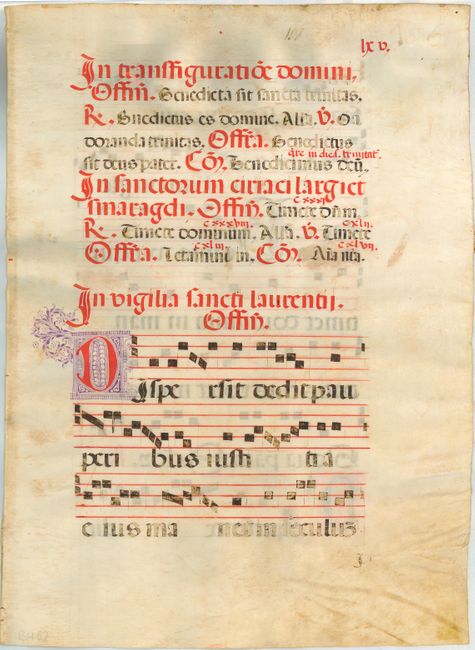 lx v.
In transfiguratiõe domini,
Offiḿ. Benedicta sit sancta trinitas.
R. Bnẽdictus es domine. Alľa. v̾. Oa
doranda trinitas. Offr̃a. Benedictus
qr̃e in dieſ. trinitat̾.
sit deus pater. Cõ. Benedicimus deũ.
In sanctorum ciriaci largi et
cxxxj
smaragdi. Offiḿ. Timete dñm.
cxxxviij cxlij
R. Timete dominum. Alľa. v̾. Timete
cxliij cxlvij
Offr̃a. Letamini in. Cõ. Aĩa ñra.
In vigilia sancti laurentij.
Offiḿ.
DIspe rsit dedit pau
peri bus iusti ti a
eius ma net in seculuz
BH 62